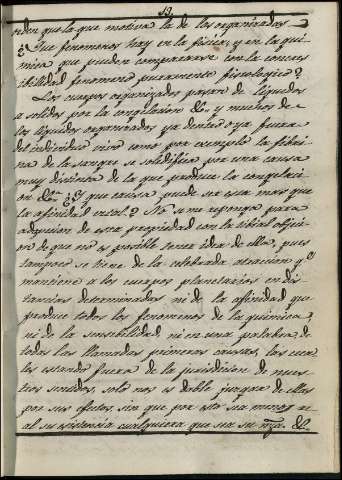 13.
orden que la que motiva la de los organizados
¿Que fenomenos hay en la fisica, y en la qui-
mica que puedan compararse con la concres
cibilidad fenomeno puramente fisiologico?
Los cuerpos organizados pasan de liquidos
a solidos por la congelacion &c. y muchos de
los liquidos organizados ya dentro o ya fuera
del individuo vivo como por exemplo la fibri-
na de la sangre se solidifica por una causa
muy distinta de la que produce la congelaci-
on &c. ¿Y que causa puede ser esta mas que
la afinidad vital? No se me oponga para
adopcion de esta propiedad con la trivial objeci-
on de que no es posible tener idea de ella, pues
tampoco se tiene de la celebrada atracion q.e
mantiene a los cuerpos planetarios en dis
tancias determinadas ni de la afinidad que
produce todos los fenomenos de la quimica,
ni de la sensibilidad, ni en una palabra, de
todas las llamadas primeras causas, las cua
les estando fuera de la jurisdicion de nues-
tros sentidos, solo nos es dable juzgar de ellas
por sus efectos sin que por esto sea menos re-
al su existencia cualquiera que sea su nza. &c.